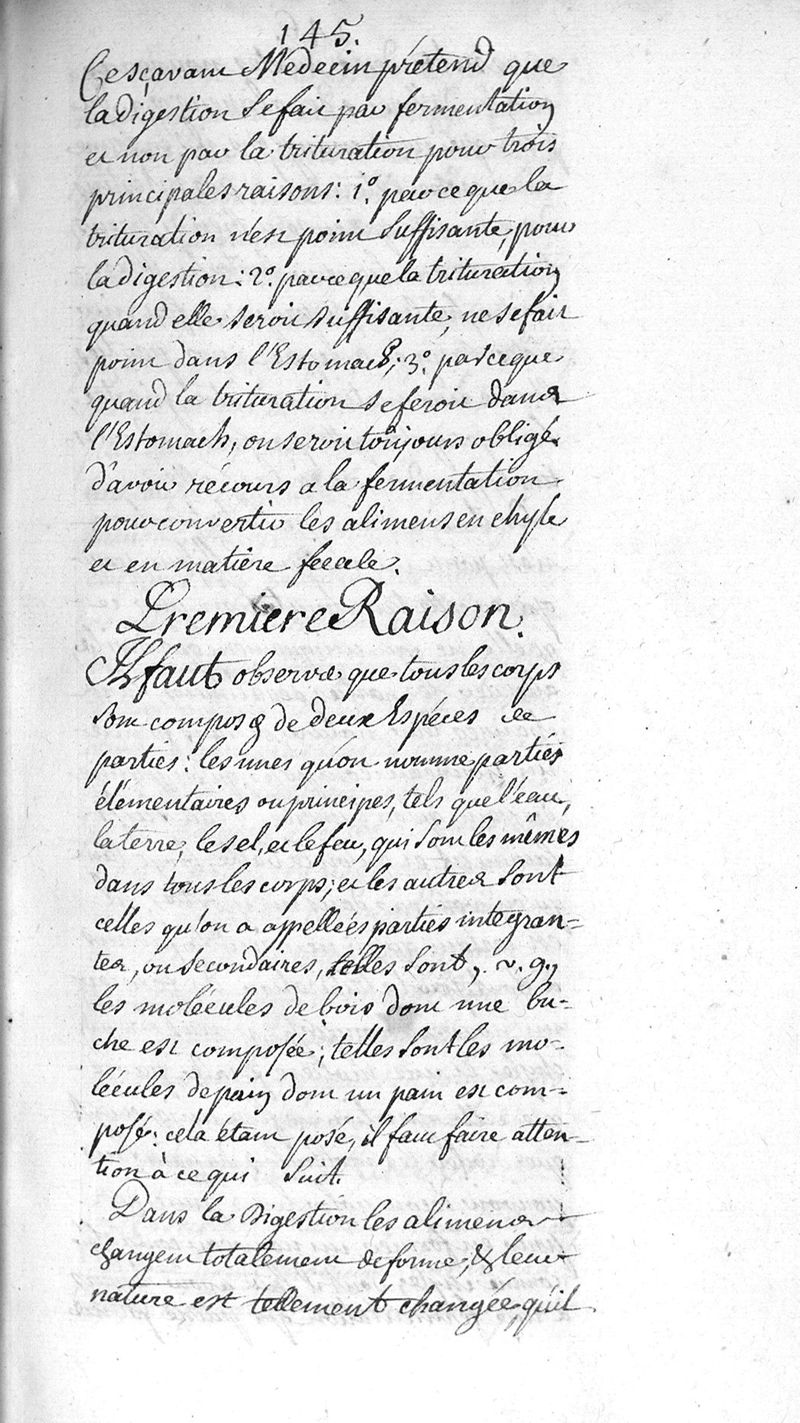 145.
Ce sçavant Medecin prétend que
la digestion se fait par fermentation
et non par la trituration pour trois
principales raisons: 1º. parce que la
trituration n'est point suffisante, pour
la digestion: 2º. parce que la trituration
quand elle seroit suffisante, ne se fait
point dans l'Estomach; 3º. parceque
quand la trituration se feroit dans
l'Estomach, on seroit toujours obligé
d'avoir récours a la fermentation
pour convertir les alimens en chyle
et en matière fecale.
Premiere Raison.
Il faut observer que tous les corps
sont composés de deux Espéces de
parties: les unes qu'on nomme parties
élémentaires ou principes, tels que l'eau,
la terre, le sel, et le feu, qui sont les mêmes
dans tous les corps; et les autres sont
celles qu'on a appellées parties integran=
tes, ou secondaires, telles sont, v. g,
les molécules de bois dont une bu-
che est composée; telles sont les mo-
lécules de pain dont un pain est com-
posé: cela étant posé, il faut faire atten-
tion à ce qui suit.
Dans la Digestion les alimens
changent totalement de forme, & leur
nature est tellement changée, qu'il